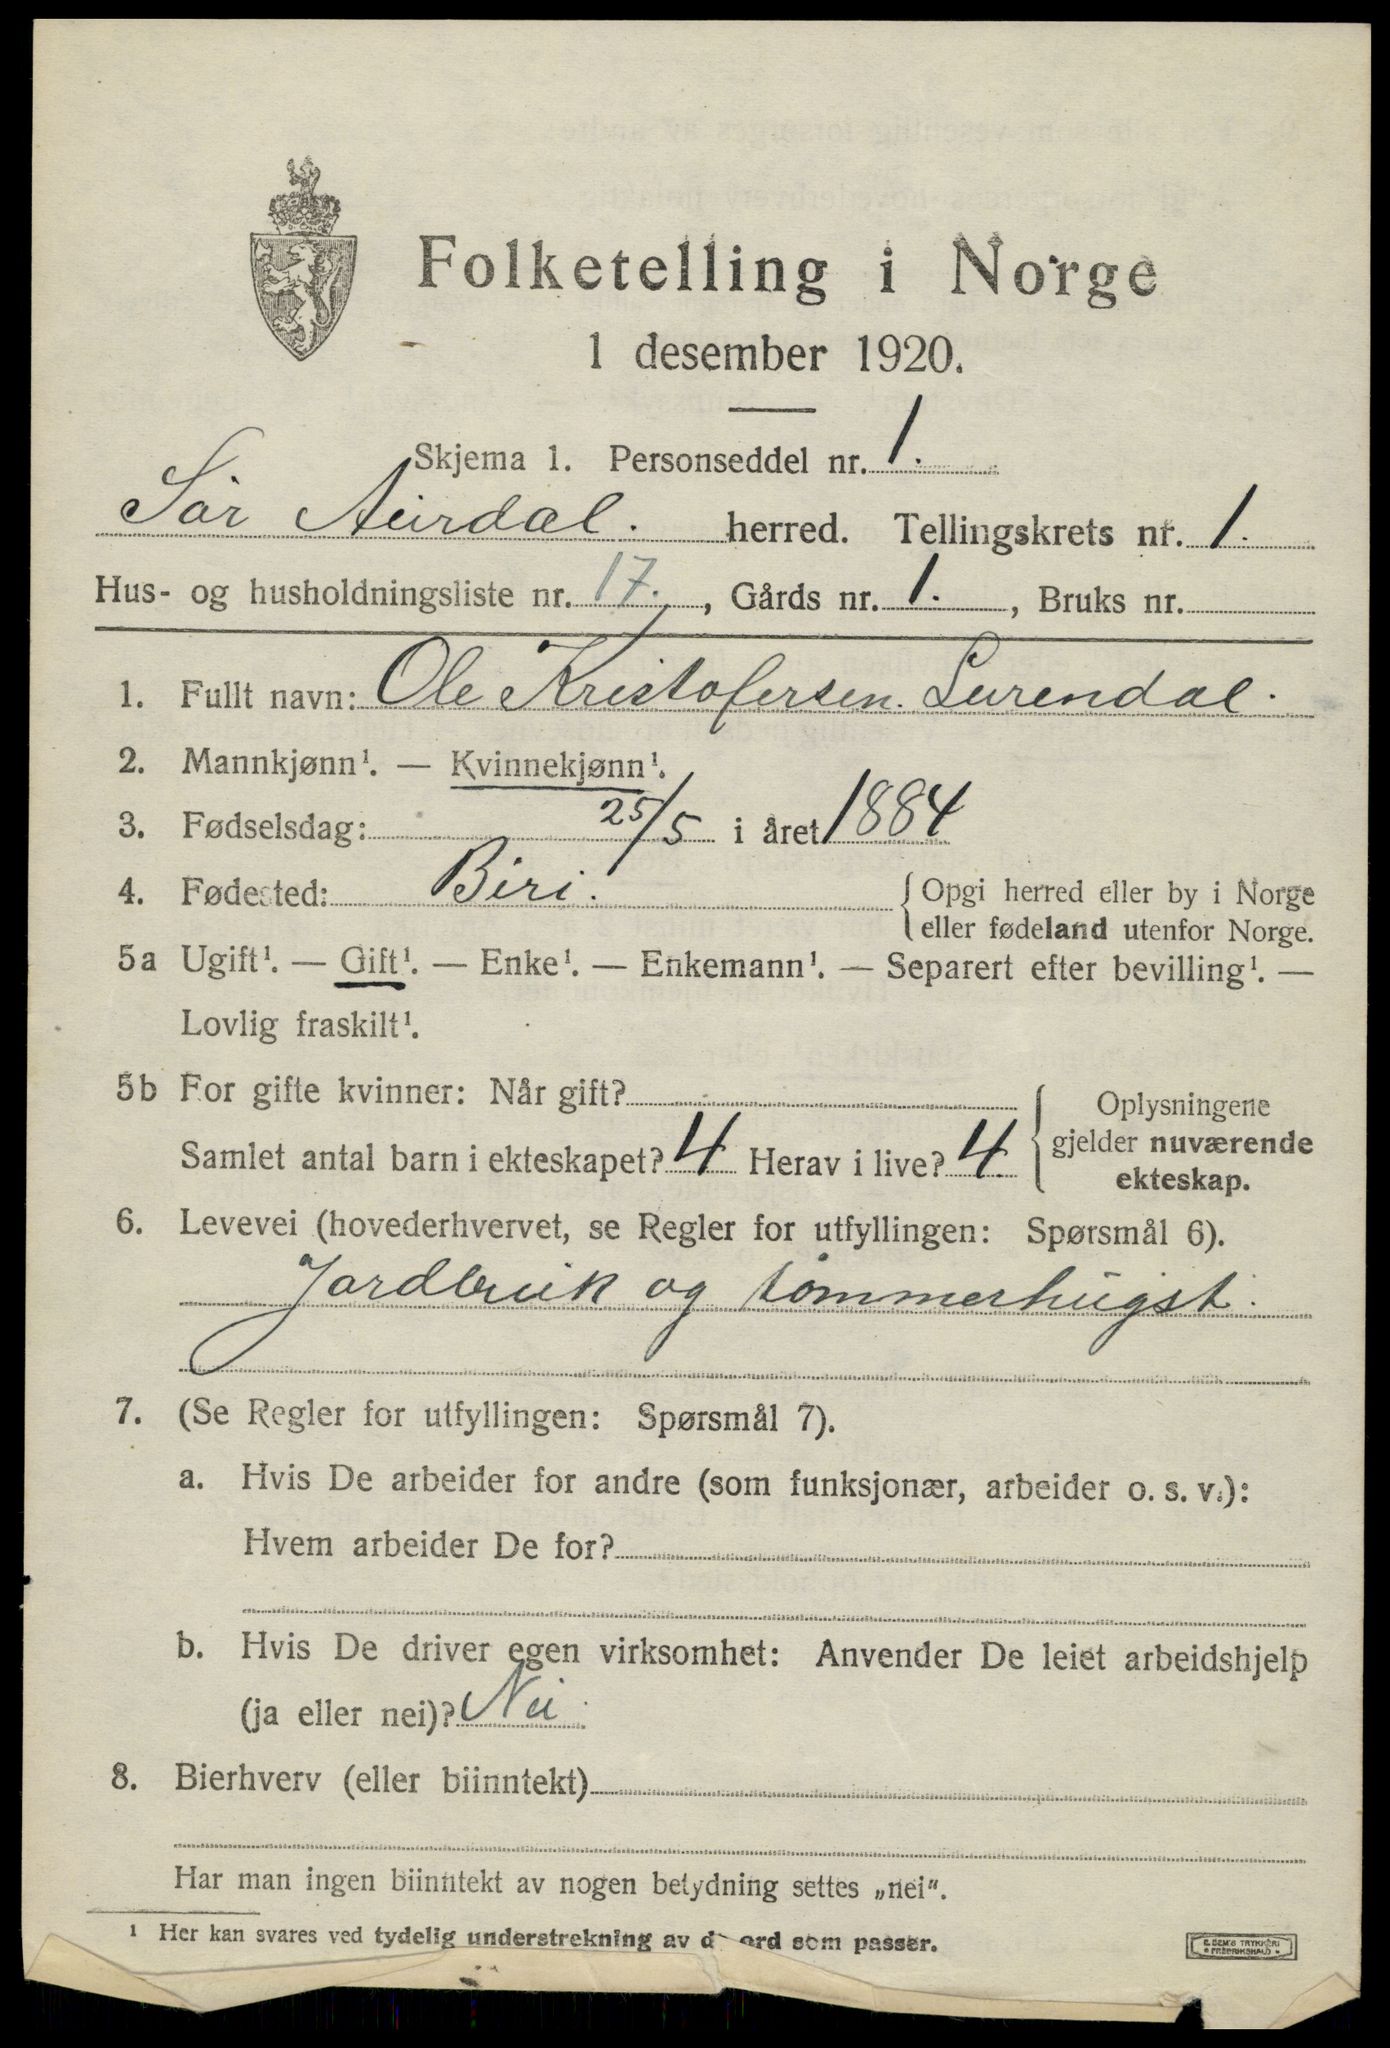 Folketelling i Norge
1 desember 1920.
Skjema 1. Personseddel nr. 1.
Sør Aurdal. herred. Tellingskrets nr. 1.
Hus- og husholdningsliste nr. 17., Gårds nr. 1., Bruks nr.
1. Fullt navn: Ole Kristofersen. Lurendal.
2. Mannkjønn¹. — Kvinnekjønn¹.
3. Fødselsdag: 25/5 i året 1884
4. Fødested: Biri. { Opgi herred eller by i Norge
eller fødeland utenfor Norge.
5a Ugift¹. — Gift¹. — Enke¹. — Enkemann¹. — Separert efter bevilling¹. —
Lovlig fraskilt¹.
5b For gifte kvinner: Når gift? { Oplysningene
gjelder nuværende
ekteskap.
Samlet antal barn i ekteskapet? 4 Herav i live? 4.
6. Levevei (hovederhvervet, se Regler for utfyllingen: Spørsmål 6).
Jordbruk og tømmerhugst.
7. (Se Regler for utfyllingen: Spørsmål 7).
a. Hvis De arbeider for andre (som funksjonær, arbeider o. s. v.):
Hvem arbeider De for?
b. Hvis De driver egen virksomhet: Anvender De leiet arbeidshjelp
(ja eller nei)? Nei.
8. Bierhverv (eller biinntekt)
Har man ingen biinntekt av nogen betydning settes „nei".
¹ Her kan svares ved tydelig understrekning av d ord som passer.
E. SEM'S TRYKKERI
FREDRIKSHALD